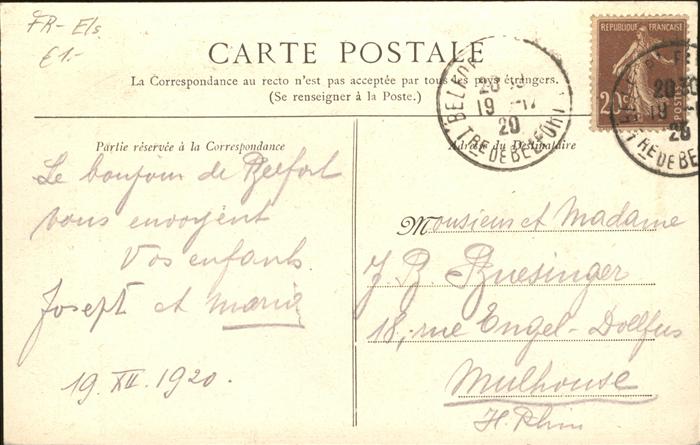 FR-Els
€1.-
CARTE POSTALE
La Correspondance au recto n'est pas acceptée par tous les pays étrangers.
(Se renseigner à la Poste.)
RÉPUBLIQUE FRANÇAISE
20c
POSTES
BELFORT
20 30
19 -12
20
TRE DE BELFORT
20 30
19
20
TRE DE BE
Partie réservée à la Correspondance
Adresse du Destinataire
Le bonjour de Belfort
vous envoyent
Vos enfants
Joseph et Maria
19. XII. 1920.
Monsieur et Madame
J. B. Buesinger
18, rue Engel-Dollfus
Mulhouse
H. Rhin